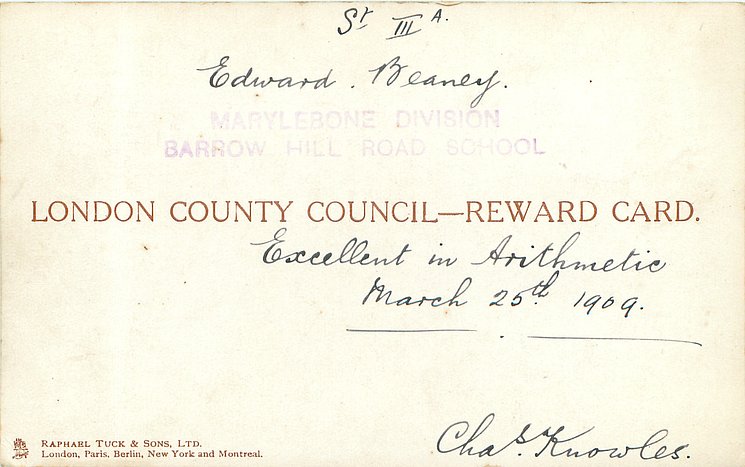 St III A.
Edward. Beaney.
MARYLEBONE DIVISION
BARROW HILL ROAD SCHOOL
LONDON COUNTY COUNCIL—REWARD CARD.
Excellent in Arithmetic
March 25th. 1909.
Chas. Knowles.
RAPHAEL TUCK & SONS, LTD.
London, Paris, Berlin, New York and Montreal.